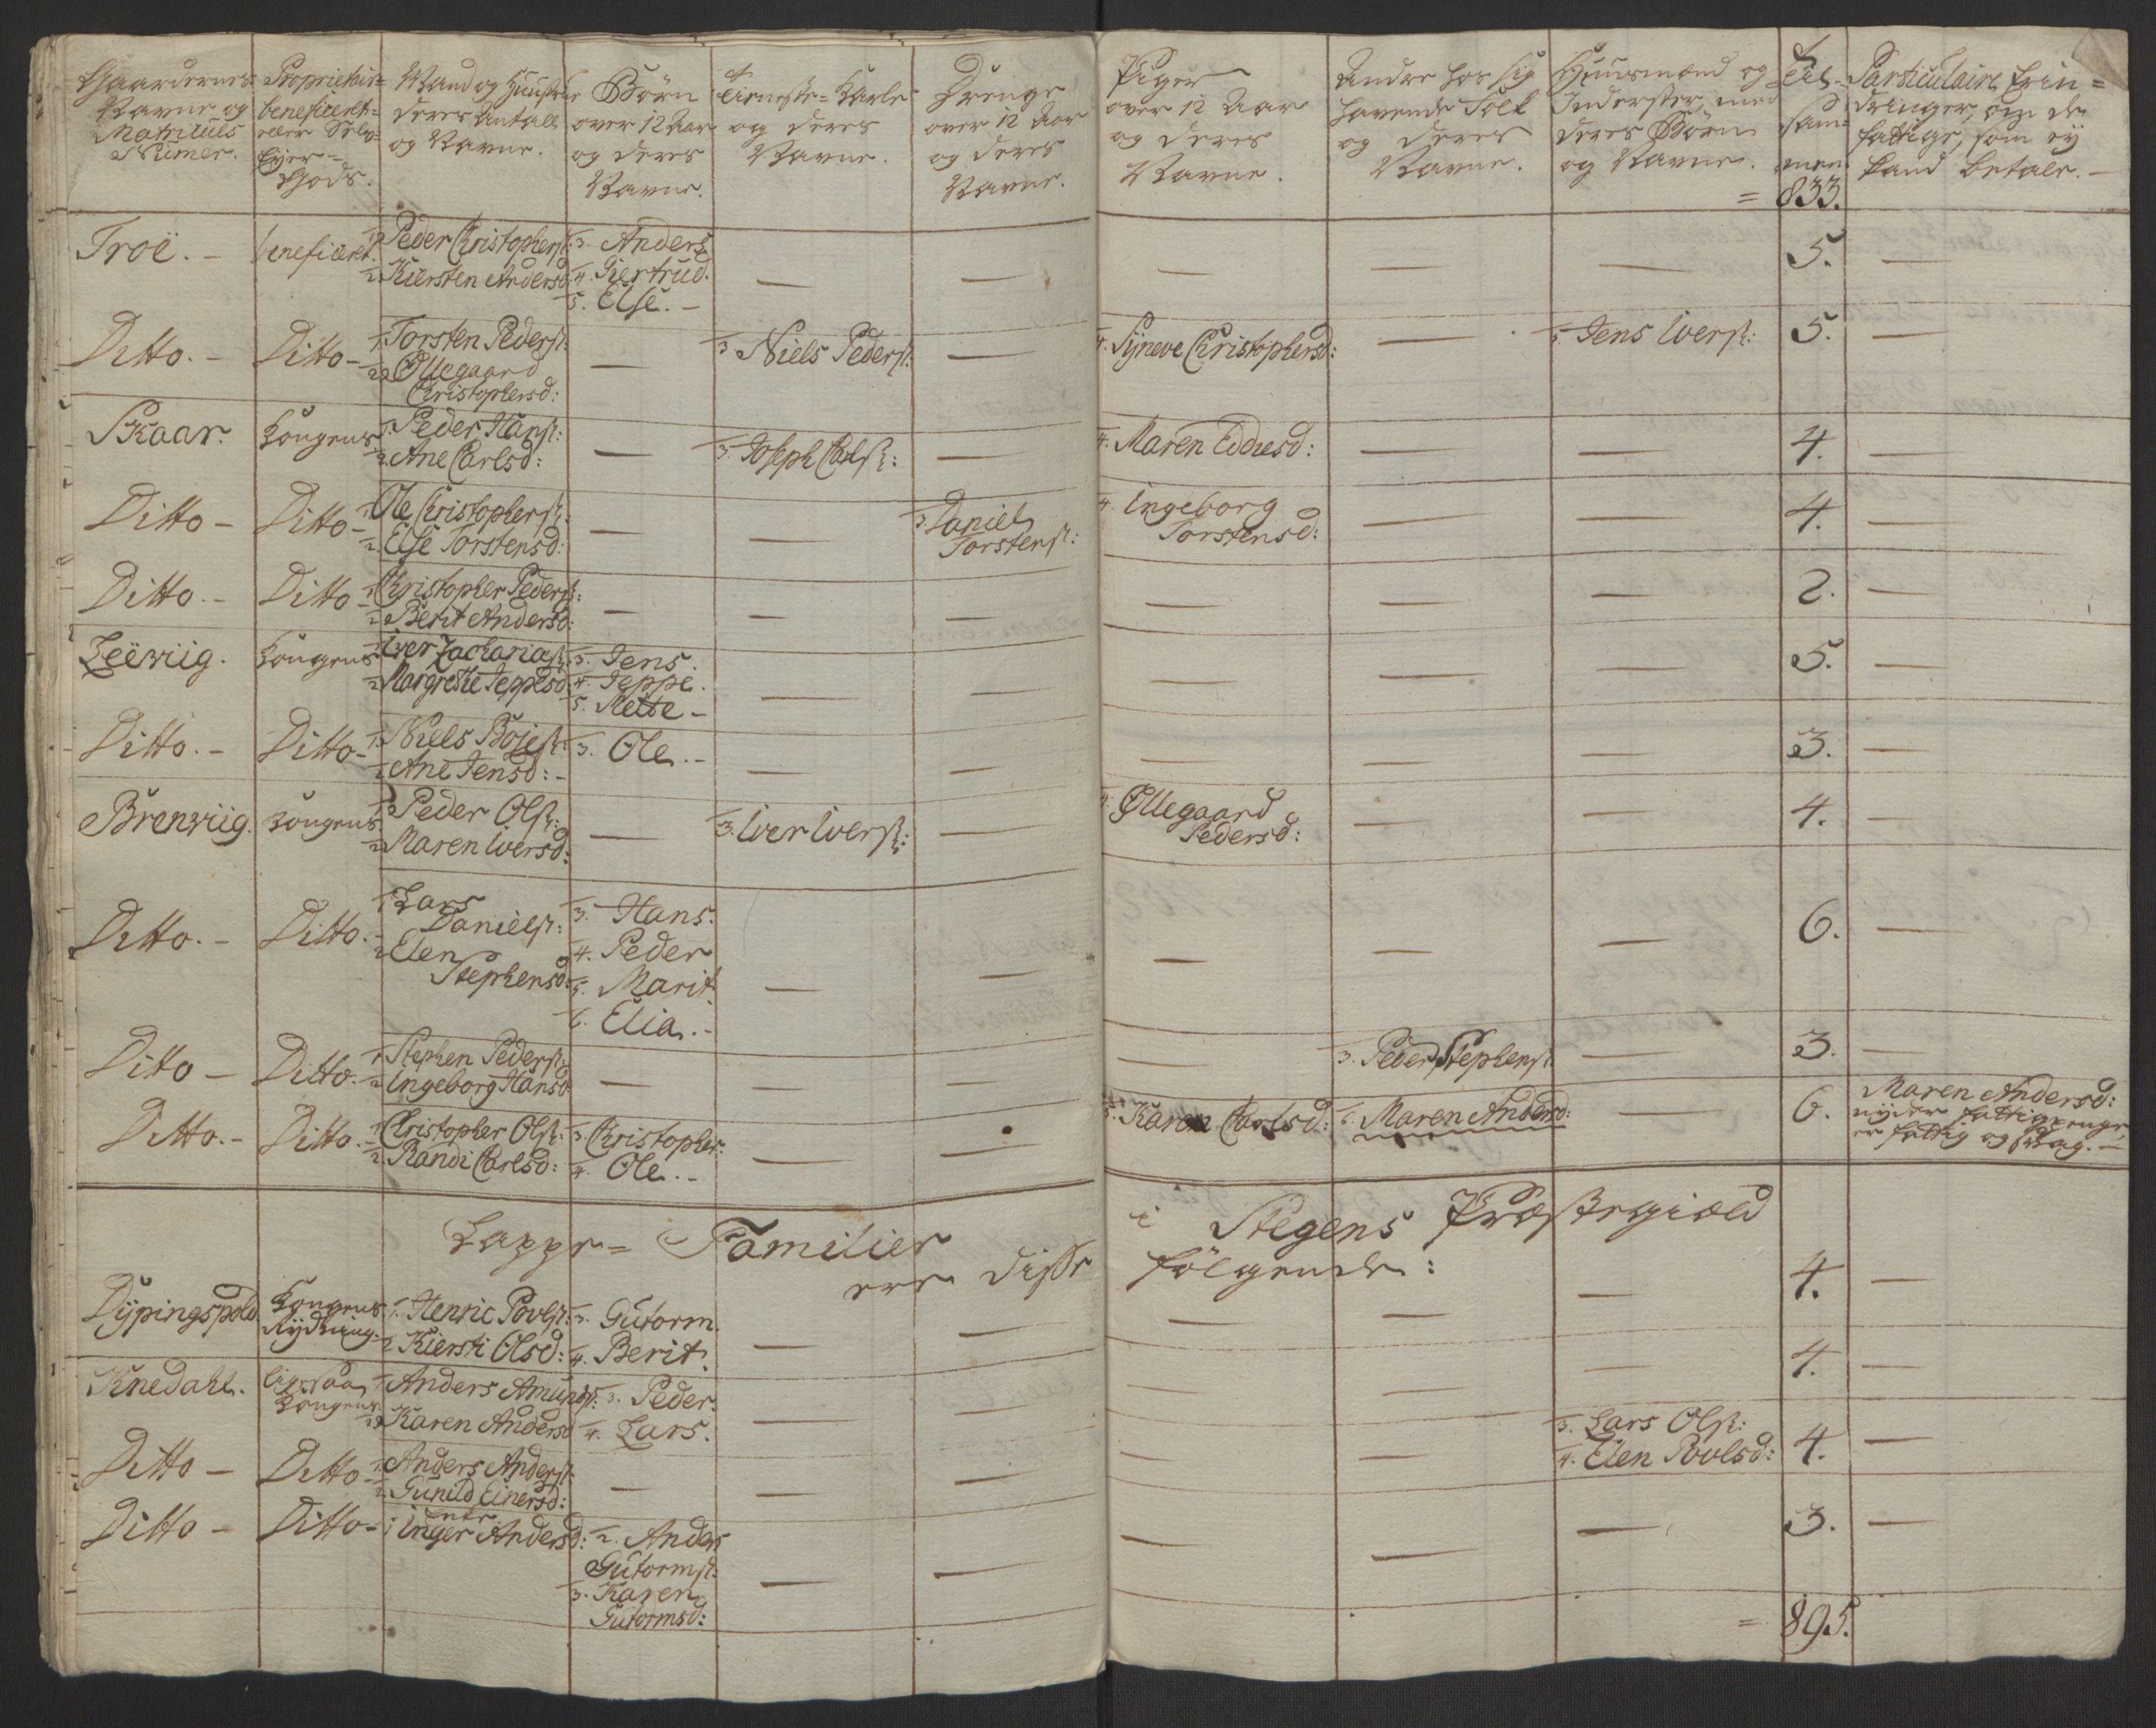 Gaardernes Navne og Matriculs Numer.
Proprietair= beneficeret= eller Selv= Eyer= Gods.
Mand og Huustrue deres Antall og Navne.
Børn over 12 Aar og deres Navne.
Tieneste= Karle og deres Navne.
Drenge over 12 Aar og deres Navne.
Piger over 12 Aar og deres Navne.
Andre hos sig havende Folk og deres Navne.
Huusmænd og Inderster, med deres Børn og Navne.
Til= sam= men.
Particulaire Erin= dringer, om de fattige, som ey kand betale.
= 833.
Troë. – beneficeret. 1. Peder Christophers: 3. Anders — — — — — 5. —
2. Kiersten Andersd: 4. Giertrud.
5. Else. –
Ditto. – Ditto – 1. Torsten Peders: — 3. Niels Peders: — 4. Sÿneve Christophersd: — 5. Jens Ivers: 5. —
2. Øllegaard
Christophersd:
Skaar. Kongens 1. Peder Hans: — 3. Joseph Carls: — 4. Maren Eddresd: — — 4. —
2. Ane Carlsd:
Ditto – Ditto – 1. Ole Christophers: — — 3. Daniel 4. Ingeborg — — 4. —
2. Else Torstensd: Torstens: Torstensd:
Ditto. – Ditto – 1. Christopher Peders: — — — — — — 2. —
2. Berit Andersd:
Leëviig. Kongens 1. Iver Zacharias: 3. Jens. — — — — — 5. —
2. Margrethe Jeppesd: 4. Jeppe.
5. Mette –
Ditto. – Ditto – 1. Niels Bojes: 3. Ole. – — — — — — 3. —
2. Ane Jensd: –
Brenviig. Kongens 1. Peder Ols: — 3. Iver Ivers: — 4. Øllegaard — — 4. —
2. Maren Iversd: Pedersd:
Ditto. – Ditto. – 1. Lars 3. Hans. — — — — — 6. —
Daniels: 4. Peder
2. Elen 5. Marit.
Stephensd: 6. Elia. –
Ditto – Ditto. 1. Stephen Peders: — — — — 3. Peder Stephens: — 3. —
2. Ingeborg Hansd:
Ditto. – Ditto. – 1. Christopher Ols: 3. Christopher: — — 5. Karen Carlsd: 6. Maren Andersd: — 6. Maren Andersd:
2. Randi Carlsd: 4. Ole. – nyder fattigpenge,
er fattig og svag. –
Lappe= Familier i Stegens Præstegiæld
ere disse følgende:
Dÿpingspold Kongens 1. Henric Povels: 3. Gutorm. — — — — — 4. —
Rydning. 2. Kiersti Olsd: 4. Berit.
Knedahl. Kongens 1. Anders Amunds: 3. Peder. — — — — — 4. —
2. Karen Andersd 4. Lars.
Ditto – Ditto – 1. Anders Anders: — — — — — 3. Lars Ols: 4. —
2. Gunild Einersd: 4. Elen Povelsd:
Ditto – Ditto – Enke
1 Inger Andersd: 2. Anders — — — — — 3. —
Gutorms:
3. Karen
Gutormsd:
= 895.